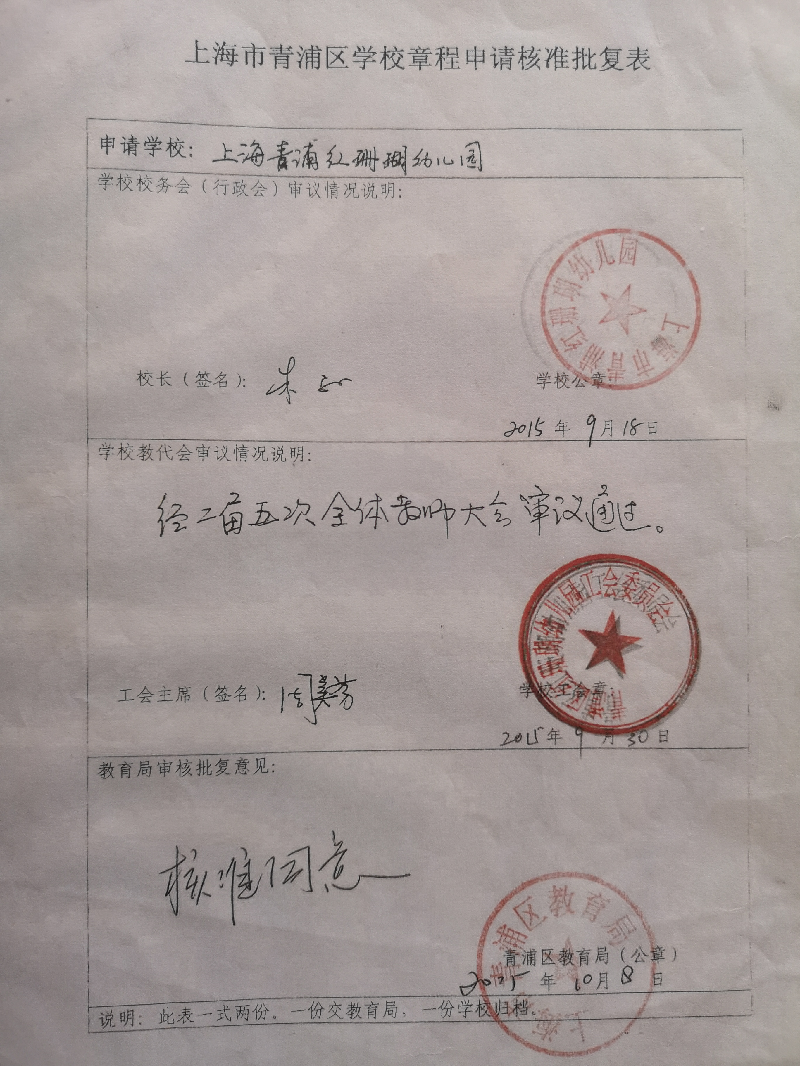 上海市青浦区学校章程申请核准批复表
申请学校：上海青浦红珊瑚幼儿园
学校校务会（行政会）审议情况说明：
上海市青浦红珊瑚幼儿园
校长（签名）：朱
学校公章：
2015年9月18日
学校教代会审议情况说明：
经二届五次全体教师大会审议通过。
幼儿园工会委员会
工会主席（签名）：周美芳
学校工会章：
2015年9月30日
教育局审核批复意见：
核准同意
上海市青浦区教育局
青浦区教育局（公章）
2015年10月8日
说明：此表一式两份。一份交教育局，一份学校归档。